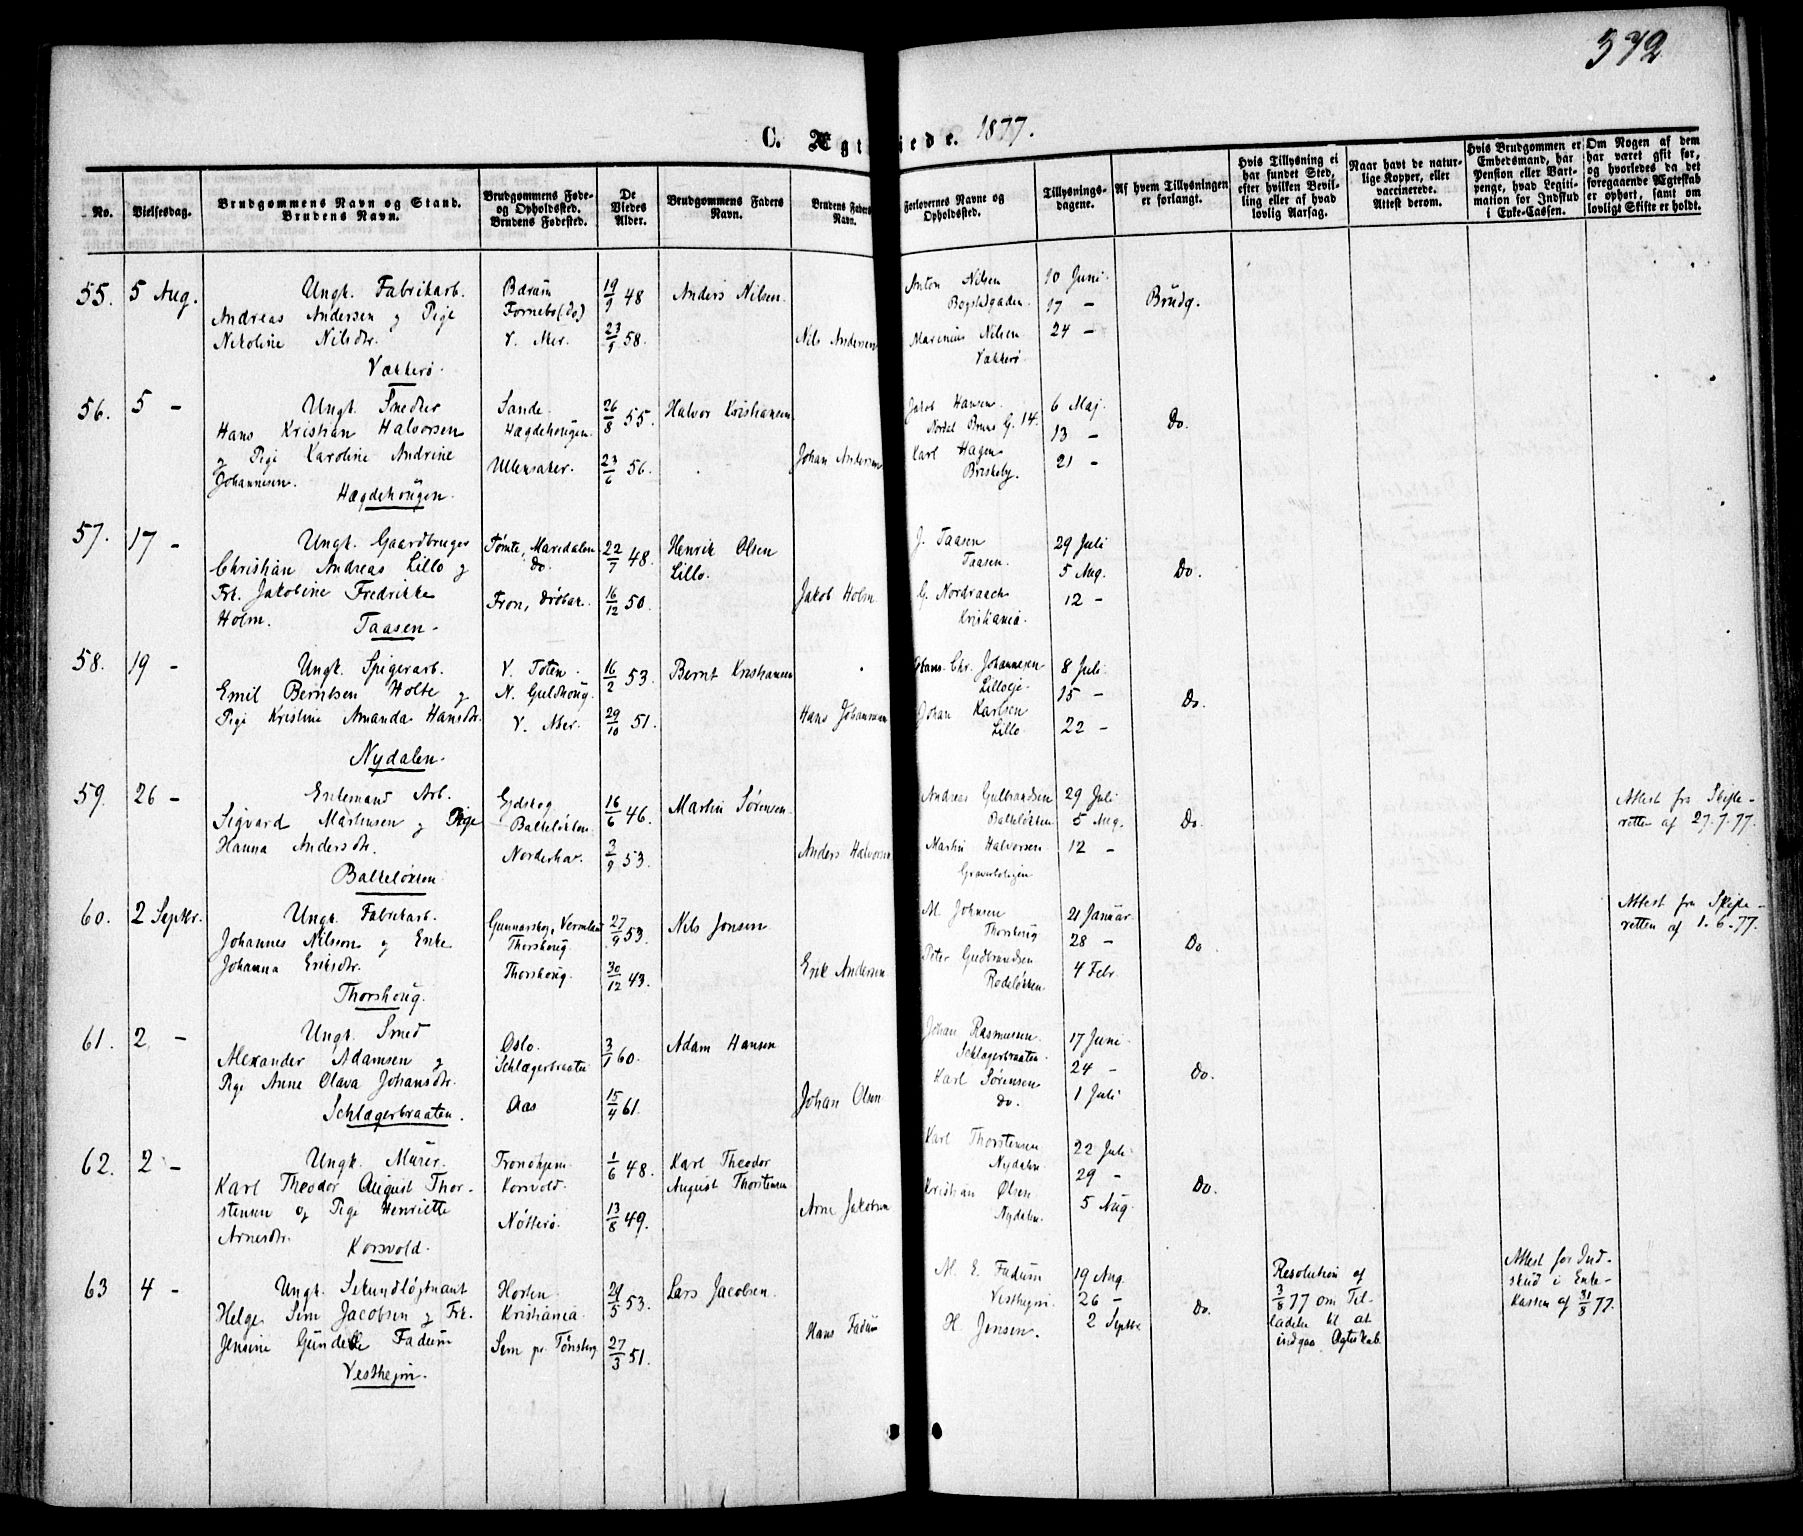 372
C. Ægt iede. 1877.
No.
Vielsesdag.
Brudgommens Navn og Stand.
Brudens Navn.
Brudgommens Føde-
og Opholdsted.
Brudens Fødested.
De
Viedes
Alder.
Brudgommens Faders
Navn.
Brudens Faders
Navn.
Forlovernes Navne og
Opholdsted.
Tillysnings-
dagene.
Af hvem Tillysningen
er forlangt.
Hvis Tillysning ei
har fundet Sted,
efter hvilken Bevil-
ling eller af hvad
lovlig Aarsag.
Naar havt de natur-
lige Kopper, eller
vaccinerede.
Attest derom.
Hvis Brudgommen er
Embedsmand, har
Pension eller Vart-
penge, hvad Legiti-
mation for Indskud
i Enke-Cassen.
Om Nogen af dem
har været gift før,
og hvorledes da det
foregaaende Ægteskab
er ophørt, samt om
lovligt Skifte er holdt.
55. 5 Aug.
Ungk. Fabrikarb.
Andreas Andersen og Pige
Nikoline Nilsdtr.
Vækkerø.
Bærum
Fornebo (do)
V. Aker.
19/9 48
23/9 58.
Anders Nilsen.
Nils Andersen
Anton Nilsen
Bogstadgaden.
Marinius Nilsen
Vækkerø.
10 Juni
17 -
24 -
Brudg.
56. 5 -
Ungk. Snedker
Hans Kristian Halvorsen
og Pige Karoline Andrine
Johannesen.
Hægdehougen.
Sande.
Hægdehougen.
Ullensaker.
26/8 55.
23/6 56.
Halvor Kristiansen
Johan Andersen
Jakob Hansen.
Nordal Bruns G. 14.
Karl Hagen
Briskeby.
6 Maj.
13 -
21 -
Do.
57. 17 -
Ungk. Gaardbruger
Christian Andreas Lillo og
Frk. Jakobine Fredrikke
Holm.
Taasen.
Tømte, Maridalen
do.
Fron, Drøbak.
22/7 48.
16/12 50.
Henrik Olsen
Lillo.
Jakob Holm
J. Taasen
Taasen.
G. Nordraach
Kristiania.
29 Juli
5 Aug.
12 -
Do.
58. 19 -
Ungk. Spigerarb.
Emil Berntsen Holte og
Pige Kristine Amanda Hansdtr.
Nydalen.
V. Toten.
N. Guldhoug.
V. Aker.
16/2 53.
29/10 51.
Bernt Kristiansen
Hans Johannesen
Hans Chr. Johannesen
Lilloeje
Johan Karlsen
Lillo
8 Juli
15 -
22 -
Do.
59. 26 -
Enkemand Arb.
Sigvard Martinsen og Pige
Hanna Andersdtr.
Bakkeløkken
Eidskog
Bakkeløkken.
Norderhov.
16/6 46.
3/9 53.
Martin Sørensen
Anders Halvorsen
Andreas Gulbrandsen
Bakkeløkken
Martin Halvorsen
29 Juli
5 Aug.
12 -
Do.
Attest fra Skifte-
retten af 27.7.77.
60. 2 Septbr.
Ungk. Fabrikarb.
Johannes Nilson og Enke
Johanna Eriksdtr.
Thorshoug.
Gunnarskog, Vermland
Thorshoug.
Thorshoug.
27/9 53.
30/12 43.
Nils Jonsen
Erik Andersen
M. Johnsen
Thorshoug
Peter Gudbrandsen
Rodeløkken.
21 Januar.
28 -
4 Febr.
Do
Attest fra Skifte-
retten af 1.6.77.
61. 2 -
Ungk. Smed
Alexander Adamsen og
Pige Anne Olava Johansdtr.
Schlagerbraaten.
Oslo.
Schlagerbraaten
Aas
3/1 60.
15/4 61.
Adam Hansen
Johan Olsen
Johan Rasmussen
Schlagerbraaten.
Karl Sørensen
do.
17 Juni
24 -
1 Juli
Do.
62. 2 -
Ungk. Murer.
Karl Theodor August Thor-
stensen og Pige Henriette
Arnesdtr.
Korsvold.
Trondhjem
Korsvold.
Nøtterø.
1/6 48.
13/8 49.
Karl Theodor
August Thorstensen
Arne Jakobsen
Karl Thorstensen
Nydalen
Kristian Olsen
Nydalen.
22 Juli
29 -
5 Aug.
Do.
63 4 -
Ungk. Sekundløjtnant
Helge Sem Jacobsen og Frk.
Jensine Gundelle Fadum
Vesthejm.
Horten.
Kristiania.
Sem pr. Tønsberg
21/5 53.
27/3 51.
Lars Jacobsen.
Hans Fadum
M. E. Fadum
Vesthejm.
H. Jensen.
19 Aug.
26 -
2 Septbr
Do.
Resolution af
3/8 77 om Til-
ladelse til at
indgaa Ægteskab.
Attest for Ind-
skud i Enke-
kassen af 31/8 77.